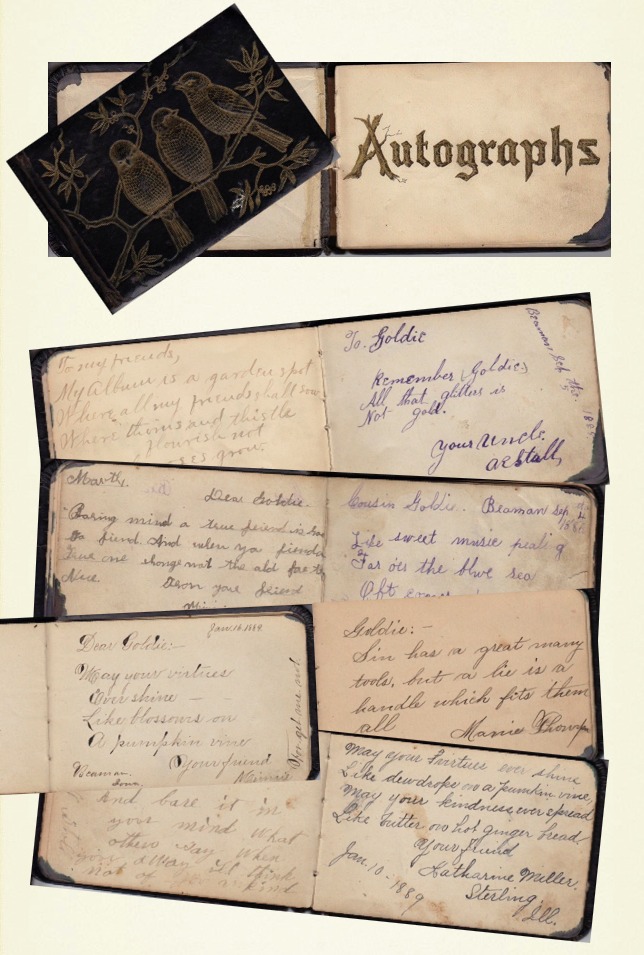 Autographs
To my friends,
My Album is a garden spot
Where all my friends shall sow
Where thorns and thistle
flourish not
roses grow.
To. Goldie
Beaman Feb
Remember (Goldie)
All that glitters is
Not gold.
Your Uncle.
Dear Goldie.
Baring mind a true friend is
to fiend. And when you
True one change not the old for the
Nice.
From your friend
Cousin Goldie.. Beaman Sep
Like sweet music pealing
Far o'er the blue sea
Oft
Jan. 16. 1889
Dear Goldie:-
May your virtues
Ever shine - -
Like blossoms on
A pumpkin vine
Your friend
Beaman.
Iowa.
For get me not
Goldie:-
Sin has a great many
tools, but a lie is a
handle which fits them
all
And bare it in
your mind What
other say When
your away
not of
kind
May your Virtues ever shine
Like dewdrops on a pumkin vine,
May your kindness ever spread
Like butter on hot ginger bread.
Your friend
Katharine Miller.
Jan. 10 - 1889
Sterling.
Ill.